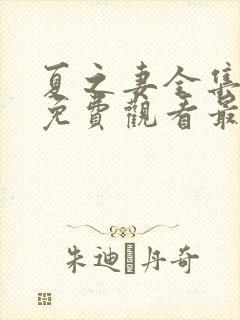 夏之妻全集
免費觀看最
朱迪·丹奇